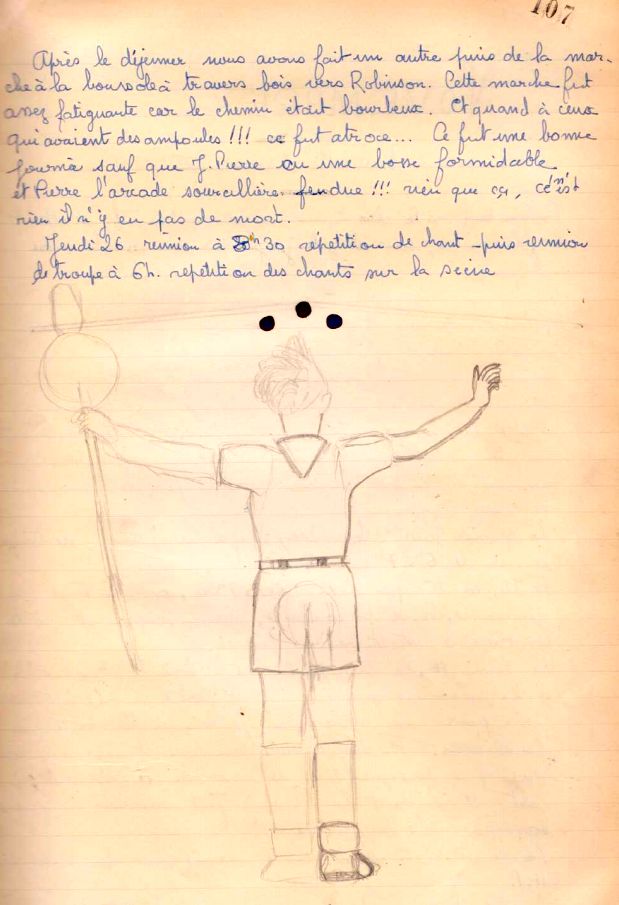 107
Après le déjeuner nous avons fait un autre puis de la mar-
che à la boussole à travers bois vers Robinson. Cette marche fut
assez fatiguante car le chemin était bourbeux. Et quand à ceux
qui avaient des ampoules !!! ce fut atroce... Ce fut une bonne
journée sauf que J. Pierre eu une bosse formidable
et Pierre l'arcade sourcillière fendue !!! rien que ça, ce n'est
rien il n'y eu pas de mort.
Jeudi 26 réunion à 30 répétition de chant puis reunion
de troupe à 6h. repetition des chants sur la scène